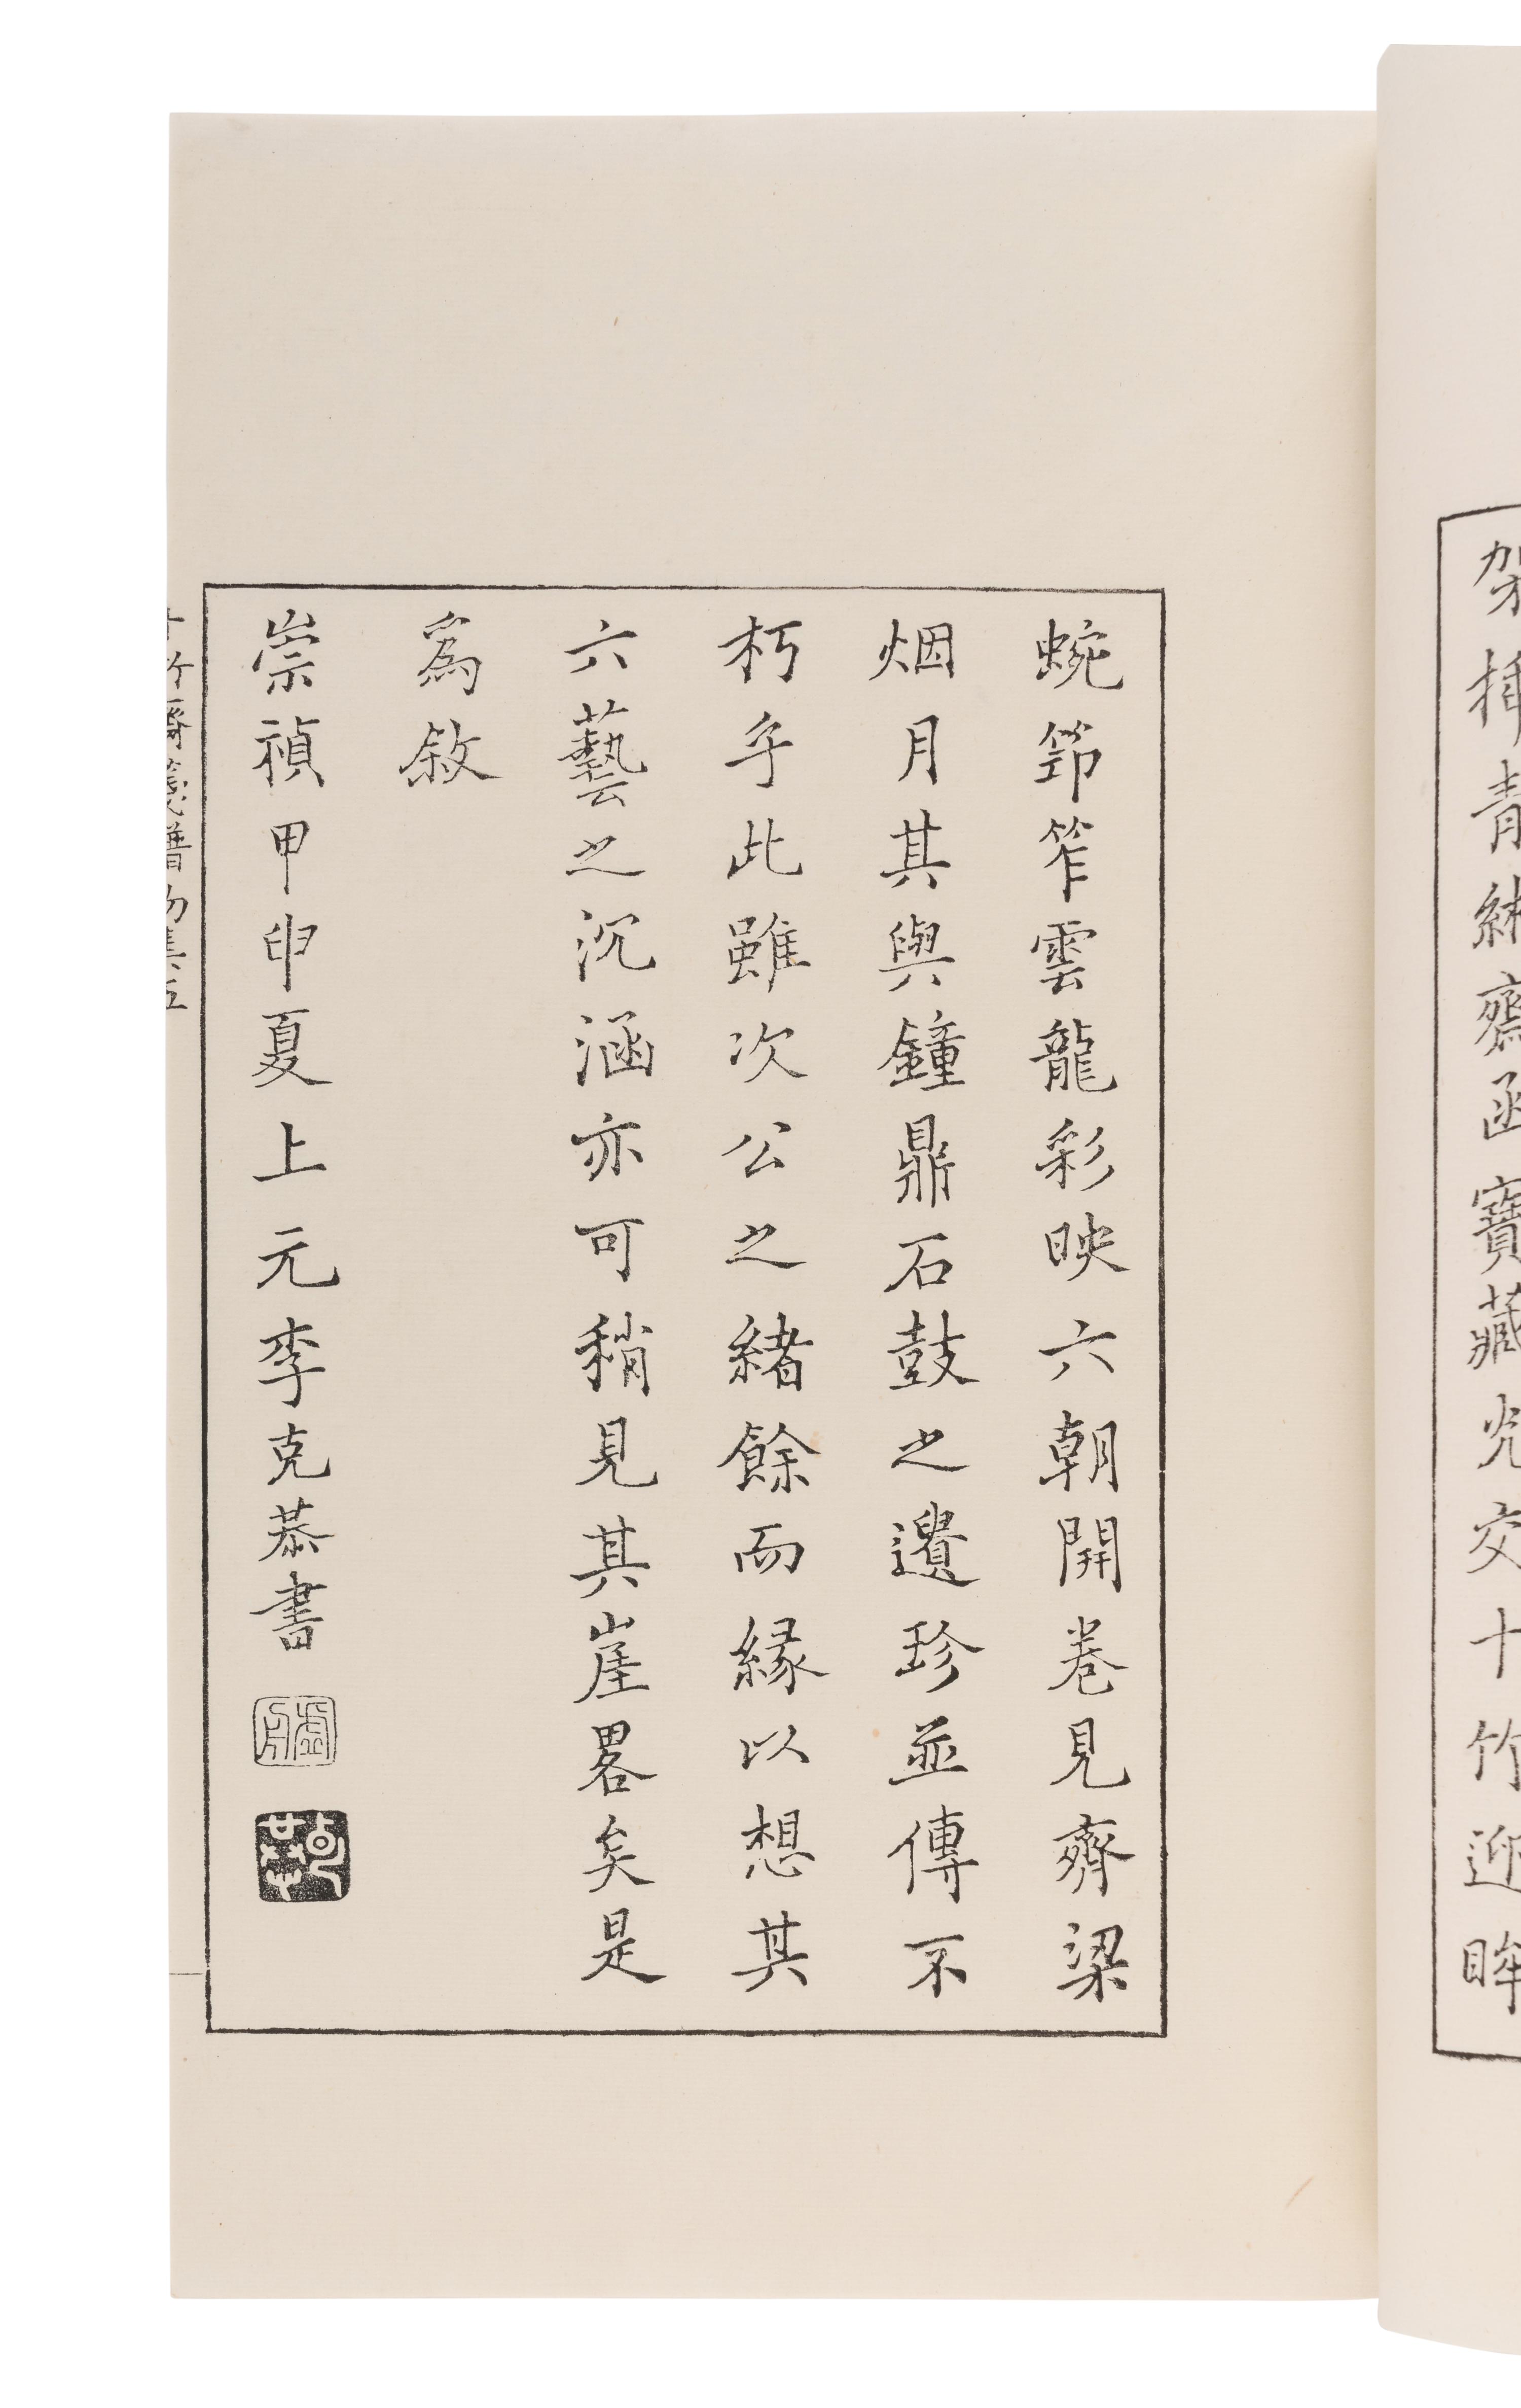 架插青緗齎函寶藏光交十竹迎眸
蜿節笮雲龍彩映六朝開卷見齊梁
烟月其與鐘鼎石鼓之遺珍並傳不
朽乎此雖次公之緒餘而緣以想其
六藝之沉涵亦可稍見其崖畧矣是
爲敘
崇禎甲申夏上元李克恭書
十竹齋箋譜初集 五